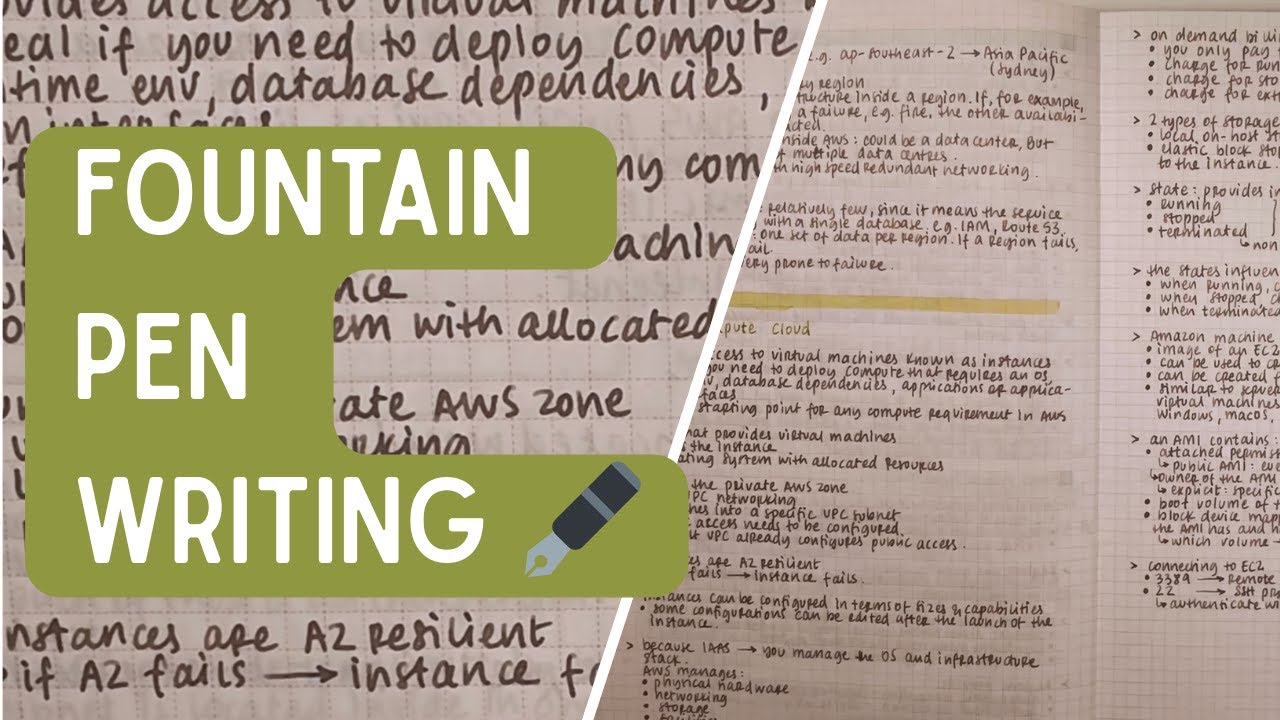 FOUNTAIN
PEN
WRITING
eal if you need to deploy compute
time env, database dependencies,
ny com
achin
nce
em with allocated
ate AWS zone
rking
instances are AZ resilient
if AZ fails → instance fa
e.g. ap-southeast-2 → Asia Pacific
(Sydney)
y region
tructure inside a region. If, for example,
a failure, e.g. fire, the other availabi-
ated.
nside AWS: could be a data center, but
multiple data centres.
th high speed redundant networking.
relatively few, since it means the service
with a single database. e.g. IAM, Route 53.
: one set of data per region. If a region fails,
ail.
ery prone to failure.
pute Cloud
ccess to virtual machines known as instances
you need to deploy compute that requires an OS,
nv, database dependencies, applications or applica-
rfaces
starting point for any compute requirement in AWS
hat provides virtual machines
s the instance
ating system with allocated resources
the private AWS zone
VPC networking
hes into a specific VPC subnet
access needs to be configured.
t VPC already configures public access.
ces are AZ resilient
fails → instance fails.
instances can be configured in terms of sizes & capabilities
• some configurations can be edited after the launch of the
instance.
> because IAAS → you manage the OS and infrastructure
stack.
AWS manages:
• physical hardware
• networking
• storage
> on demand billi
• you only pay
• charge for run
• charge for sto
• charge for ext
> 2 types of storage
• local on-host st
• elastic block sto
to the instance.
> state: provides in
• running
• stopped
• terminated
↳ non
> the states influen
• when running,
• when stopped,
• when terminated
> Amazon machine
• image of an EC2
• can be used to c
• can be created f
• similar to server
virtual machine
windows, macos,
> an AMI contains
• attached permis
↳ public AMI: eve
↳ owner of the AMI
↳ explicit: specific
• boot volume of t
• block device map
the AMI has and h
↳ which volume →
> connecting to EC2
• 3389 → Remote
• 22 → SSH pro
↳ authenticate wi